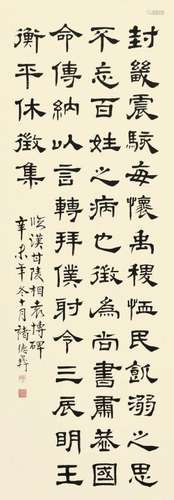 封畿震駭每懷禹稷恤民飢溺之思
不忘百姓之病也徵為尚書肅恭國
命傳納以言轉拜僕射令三辰明王
衡平休徵集
臨漢甘陵相袁博碑
辛未年冬十月褚德彝